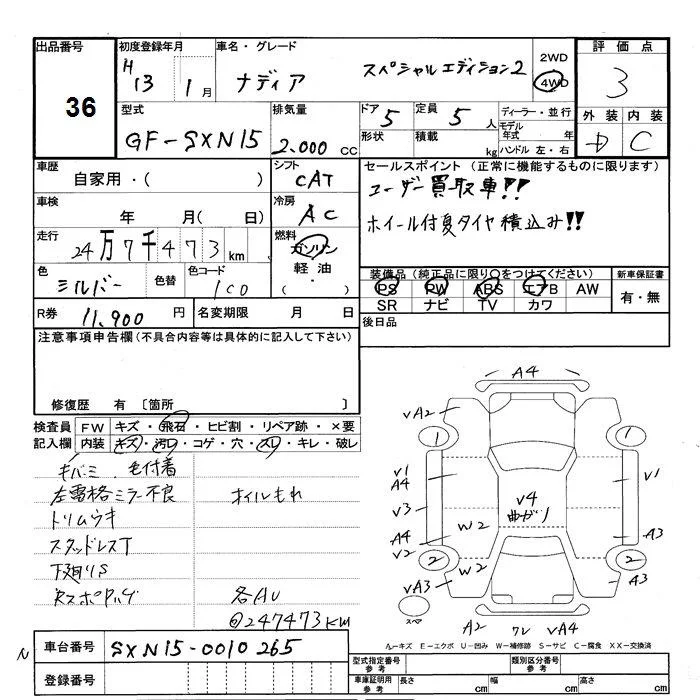 出品番号
36
初度登録年月
H 13 1月
車名・グレード
ナディア スペシャルエディション2
2WD
4WD
評価点
3
外装 内装
D C
型式
GF-SXN15
排気量
2.000 CC
ドア
5
定員
5人
形状
積載
kg
ディーラー・並行
モデル年式 年
ハンドル 左・右
車歴
自家用・( )
シフト
CAT
セールスポイント (正常に機能するものに限ります)
ユーザー買取車!!
ホイール付夏タイヤ積込み!!
車検
年 月( 日)
冷房
AC
走行
24万7千473km
燃料
ガソリン
軽油
色
シルバー
色替
色コード
1C0
装備品 (純正品に限り○をつけてください)
PS PW ABS エアB AW
SR ナビ TV カワ
新車保証書
有・無
R券
11,900 円
名変期限 月 日
後日品
注意事項申告欄 (不具合内容等は具体的に記入して下さい)
修復歴 有 〔箇所 〕
検査員
記入欄
FW キズ・飛石・ヒビ割・リペア跡・×要
内装 キズ・汚レ・コゲ・穴・スレ・キレ・破レ
キバミ 毛付着
左電格ミラー不良 オイルもれ
トリムウキ
スタッドレスT
下廻りS
RスポPハゲ 各AU
@247473KM
A4
VA2
1 1
V1
A4
V1
V3
V4
曲がり
W2
A4
V2
A3
W2
2 2
VA3
A3
スペ
A2 ワレ VA4
ル-キズ E-エクボ U-凹み W-補修跡 S-サビ C-腐食 XX-交換済
N
車台番号
SXN15-0010265
登録番号
型式指定番号
参考
類別区分番号
参考
車庫証明用
参考
長さ cm
幅 cm
高さ cm